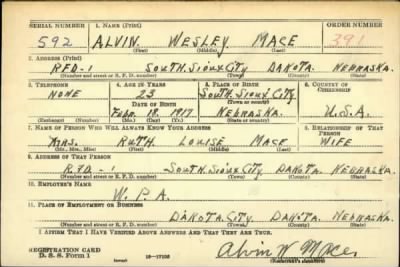 SERIAL NUMBER 1. NAME (Print) ORDER NUMBER
592 ALVIN WESLEY MACE 391
(First) (Middle) (Last)
2. ADDRESS (Print)
RFD-1 SOUTH SIOUX CITY DAKOTA NEBRASKA
(Number and street or R. F. D. number) (Town) (County) (State)
3. TELEPHONE 4. AGE IN YEARS 5. PLACE OF BIRTH 6. COUNTRY OF CITIZENSHIP
NONE 23 SOUTH SIOUX CITY
DATE OF BIRTH (Town or county)
Febr. 18, 1917 NEBRASKA U.S.A.
(Exchange) (Number) (Mo.) (Day) (Yr.) (State or country)
7. NAME OF PERSON WHO WILL ALWAYS KNOW YOUR ADDRESS 8. RELATIONSHIP OF THAT PERSON
MRS. RUTH LOUISE MACE WIFE
(Mr., Mrs., Miss) (First) (Middle) (Last)
9. ADDRESS OF THAT PERSON
RFD-1 SOUTH SIOUX CITY DAKOTA NEBRASKA
(Number and street or R. F. D. number) (Town) (County) (State)
10. EMPLOYER'S NAME
W.P.A.
11. PLACE OF EMPLOYMENT OR BUSINESS
DAKOTA CITY DAKOTA NEBRASKA
(Number and street or R. F. D. number) (Town) (County) (State)
I AFFIRM THAT I HAVE VERIFIED ABOVE ANSWERS AND THAT THEY ARE TRUE.
REGISTRATION CARD
D. S. S. Form 1 16-17105 Alvin W Mace